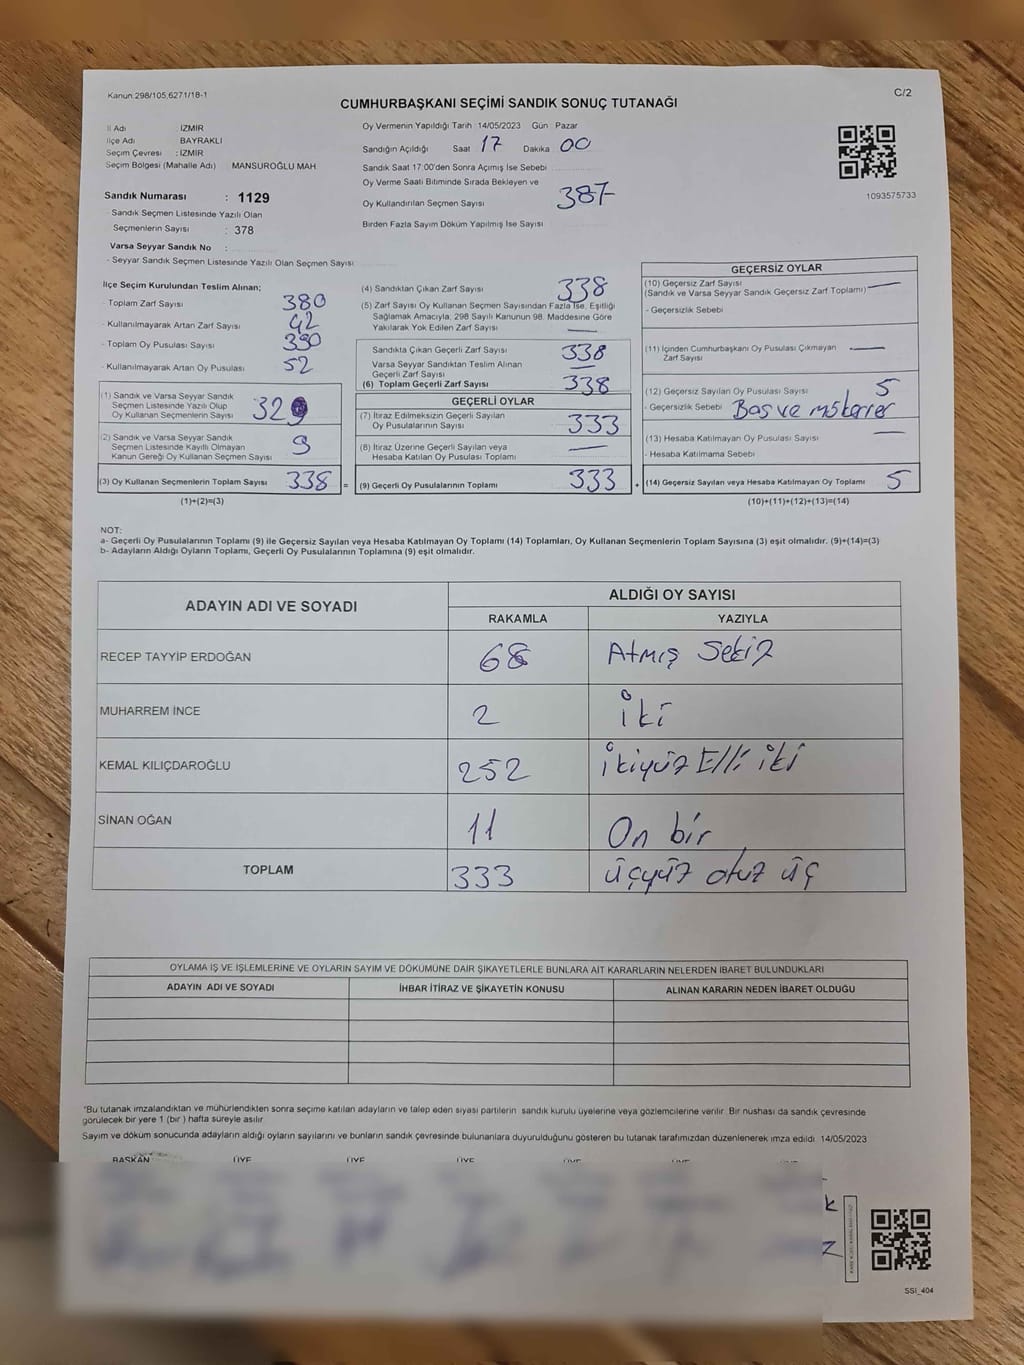 Kanun 298/105,6271/18-1
C/2
CUMHURBAŞKANI SEÇİMİ SANDIK SONUÇ TUTANAĞI
İl Adı : İZMİR
İlçe Adı : BAYRAKLI
Seçim Çevresi : İZMİR
Seçim Bölgesi (Mahalle Adı) : MANSUROĞLU MAH
Sandık Numarası : 1129
- Sandık Seçmen Listesinde Yazılı Olan
Seçmenlerin Sayısı : 378
Varsa Seyyar Sandık No :
- Seyyar Sandık Seçmen Listesinde Yazılı Olan Seçmen Sayısı
Oy Vermenin Yapıldığı Tarih : 14/05/2023 Gün : Pazar
Sandığın Açıldığı Saat 17 Dakika 00
Sandık Saat 17:00'den Sonra Açımış İse Sebebi
Oy Verme Saati Bitiminde Sırada Bekleyen ve
Oy Kullandırılan Seçmen Sayısı 387
Birden Fazla Sayım Döküm Yapılmış İse Sayısı
1093575733
İlçe Seçim Kurulundan Teslim Alınan;
- Toplam Zarf Sayısı 380
- Kullanılmayarak Artan Zarf Sayısı 42
- Toplam Oy Pusulası Sayısı 390
- Kullanılmayarak Artan Oy Pusulası 52
(1) Sandık ve Varsa Seyyar Sandık
Seçmen Listesinde Yazılı Olup
Oy Kullanan Seçmenlerin Sayısı 329
(2) Sandık ve Varsa Seyyar Sandık
Seçmen Listesinde Kayıtlı Olmayan
Kanun Gereği Oy Kullanan Seçmen Sayısı 9
(3) Oy Kullanan Seçmenlerin Toplam Sayısı 338 =
(1)+(2)=(3)
(4) Sandıktan Çıkan Zarf Sayısı 338
(5) Zarf Sayısı Oy Kullanan Seçmen Sayısından Fazla İse, Eşitliği
Sağlamak Amacıyla, 298 Sayılı Kanunun 98. Maddesine Göre
Yakılarak Yok Edilen Zarf Sayısı —
Sandıkta Çıkan Geçerli Zarf Sayısı 338
Varsa Seyyar Sandıktan Teslim Alınan
Geçerli Zarf Sayısı —
(6) Toplam Geçerli Zarf Sayısı 338
GEÇERLİ OYLAR
(7) İtiraz Edilmeksizin Geçerli Sayılan
Oy Pusulalarının Sayısı 333
(8) İtiraz Üzerine Geçerli Sayılan veya
Hesaba Katılan Oy Pusulası Toplamı —
(9) Geçerli Oy Pusulalarının Toplamı 333 +
GEÇERSİZ OYLAR
(10) Geçersiz Zarf Sayısı —
(Sandık ve Varsa Seyyar Sandık Geçersiz Zarf Toplamı)
- Geçersizlik Sebebi
(11) İçinden Cumhurbaşkanı Oy Pusulası Çıkmayan —
Zarf Sayısı
(12) Geçersiz Sayılan Oy Pusulası Sayısı 5
- Geçersizlik Sebebi Boş ve mükerrer
(13) Hesaba Katılmayan Oy Pusulası Sayısı —
- Hesaba Katılmama Sebebi
(14) Geçersiz Sayılan veya Hesaba Katılmayan Oy Toplamı 5
(10)+(11)+(12)+(13)=(14)
NOT:
a- Geçerli Oy Pusulalarının Toplamı (9) ile Geçersiz Sayılan veya Hesaba Katılmayan Oy Toplamı (14) Toplamları, Oy Kullanan Seçmenlerin Toplam Sayısına (3) eşit olmalıdır. (9)+(14)=(3)
b- Adayların Aldığı Oyların Toplamı, Geçerli Oy Pusulalarının Toplamına (9) eşit olmalıdır.
ADAYIN ADI VE SOYADI
ALDIĞI OY SAYISI
RAKAMLA YAZIYLA
RECEP TAYYİP ERDOĞAN 68 Atmış Sekiz
MUHARREM İNCE 2 İki
KEMAL KILIÇDAROĞLU 252 İkiyüz Elli iki
SİNAN OĞAN 11 On bir
TOPLAM 333 üçyüz otuz üç
OYLAMA İŞ VE İŞLEMLERİNE VE OYLARIN SAYIM VE DÖKÜMÜNE DAİR ŞİKAYETLERLE BUNLARA AİT KARARLARIN NELERDEN İBARET BULUNDUKLARI
ADAYIN ADI VE SOYADI İHBAR İTİRAZ VE ŞİKAYETİN KONUSU ALINAN KARARIN NEDEN İBARET OLDUĞU
*Bu tutanak imzalandıktan ve mühürlendikten sonra seçime katılan adayların ve talep eden siyasi partilerin sandık kurulu üyelerine veya gözlemcilerine verilir. Bir nüshası da sandık çevresinde
görülecek bir yere 1 (bir ) hafta süreyle asılır.
Sayım ve döküm sonucunda adayların aldığı oyların sayılarını ve bunların sandık çevresinde bulunanlara duyurulduğunu gösteren bu tutanak tarafımızdan düzenlenerek imza edildi. 14/05/2023
BAŞKAN ÜYE ÜYE ÜYE ÜYE ÜYE ÜYE
SSİ_404